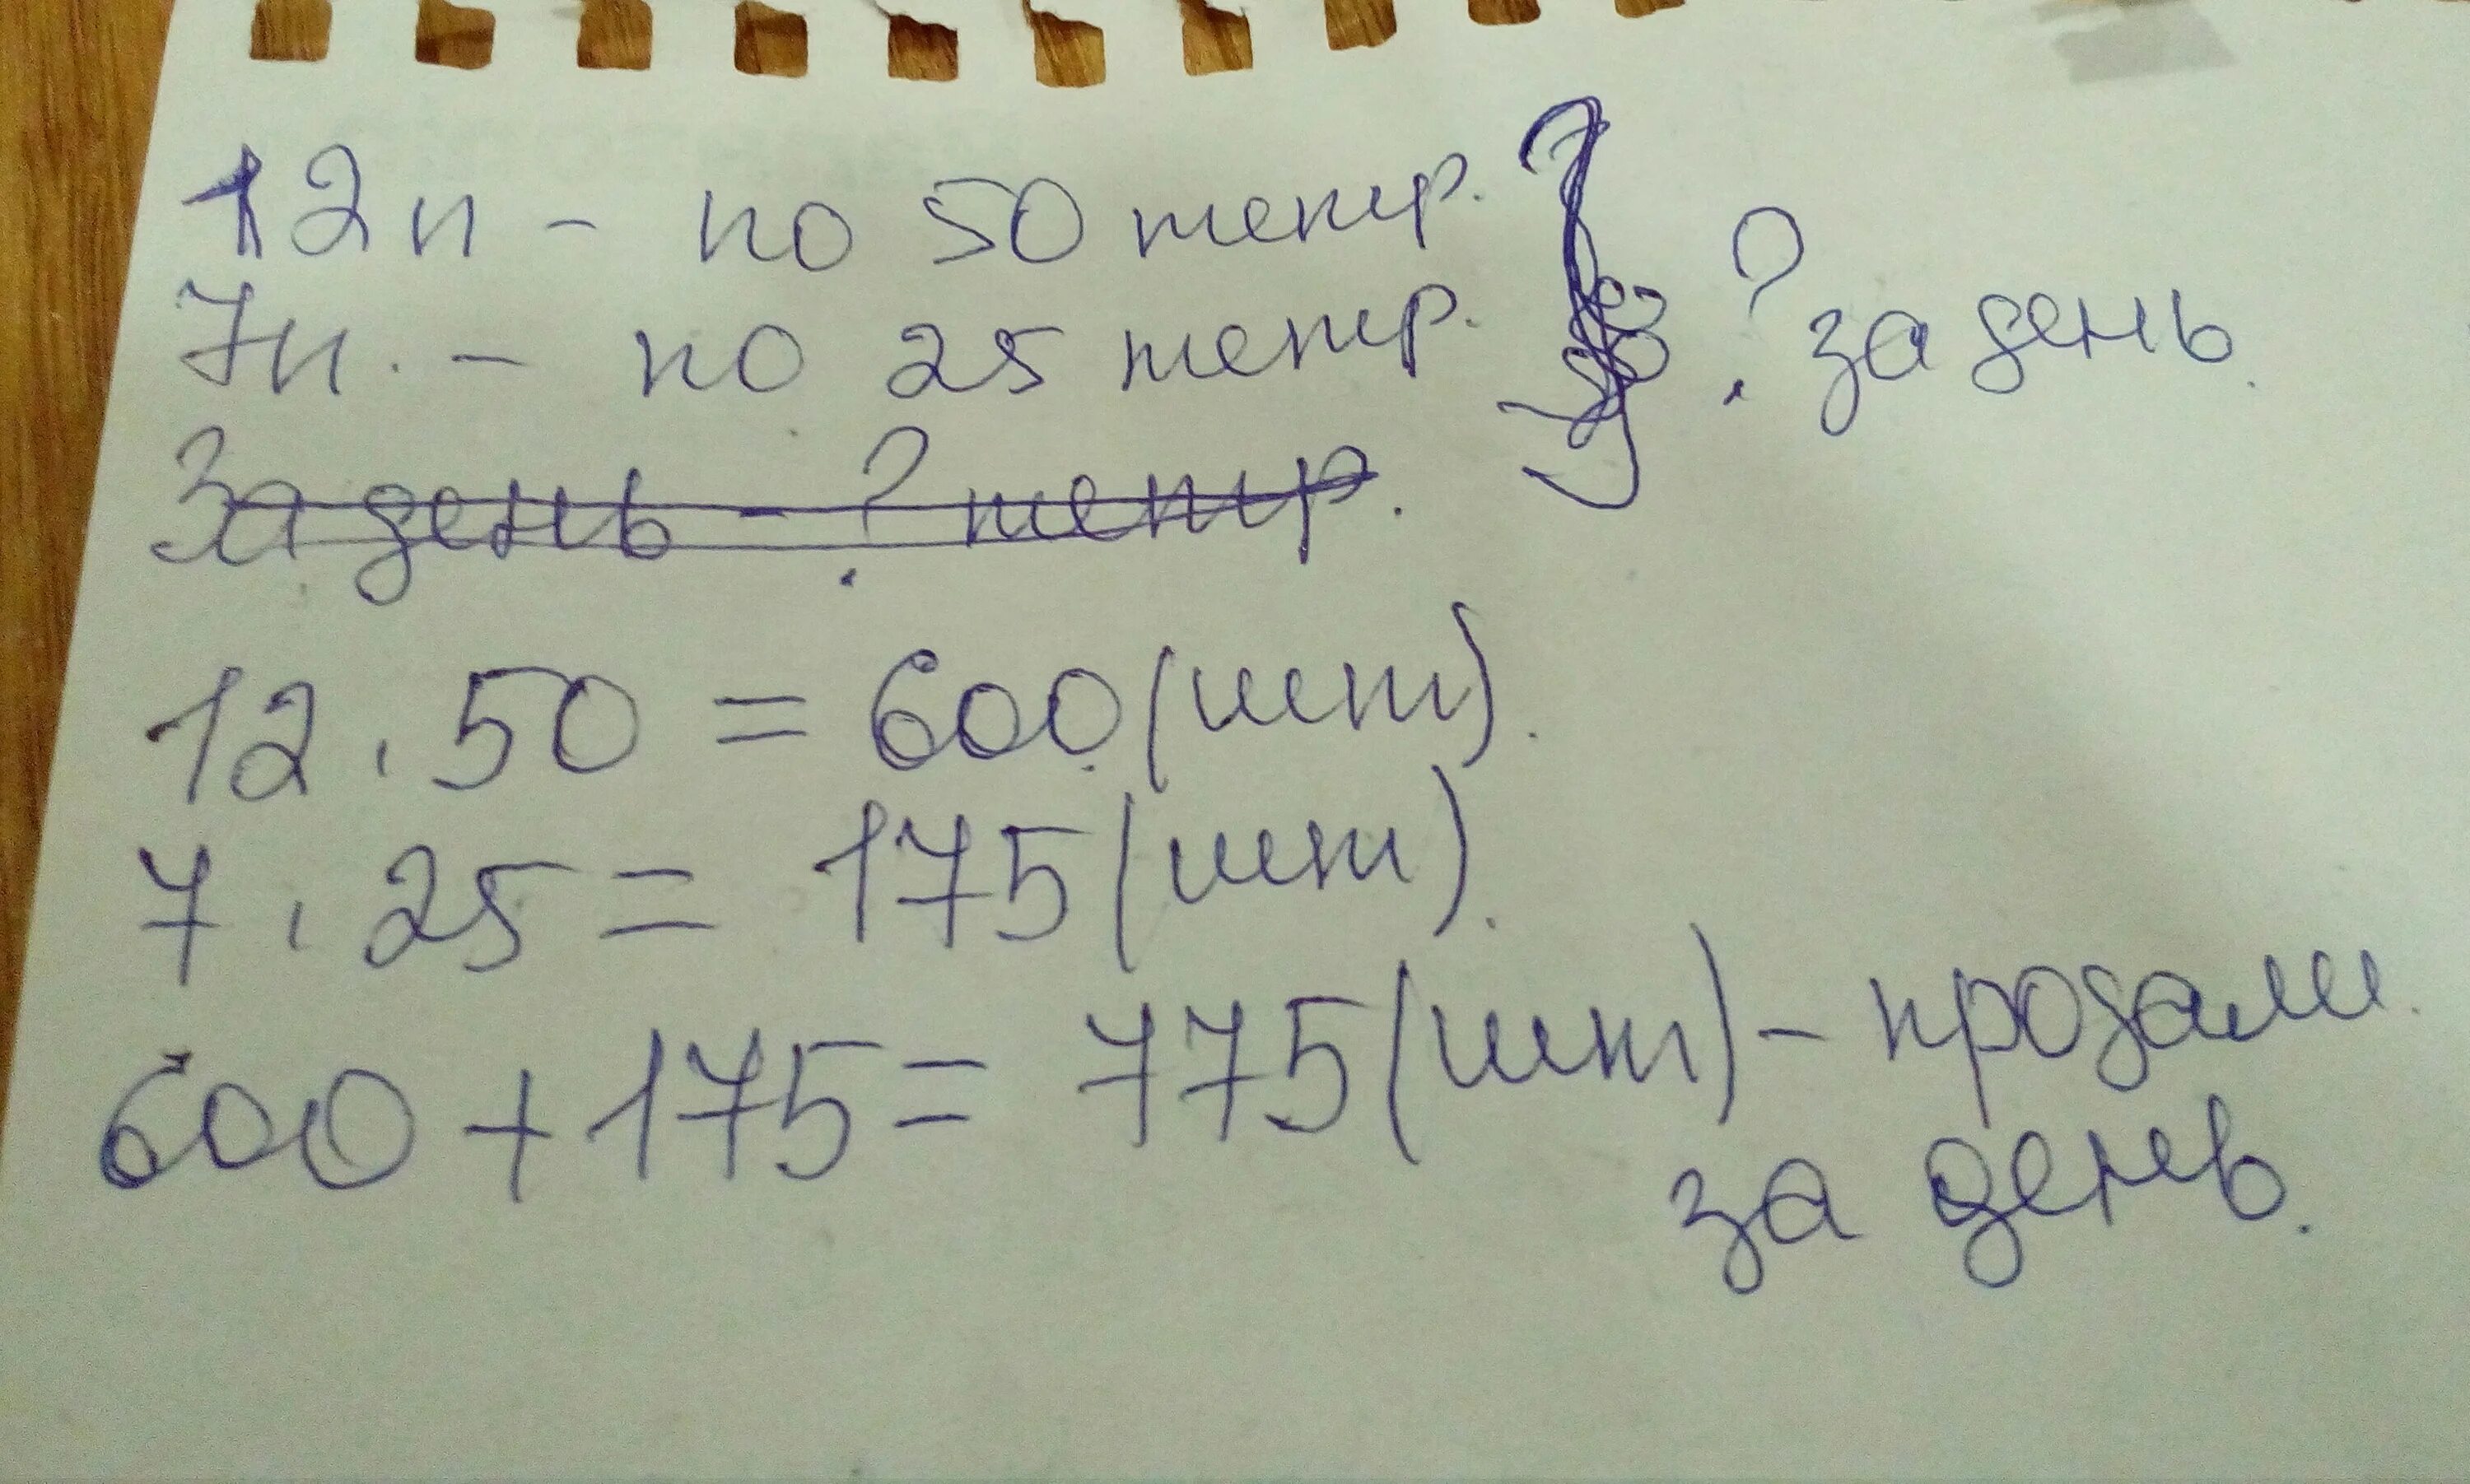 12п - по 50 тетр.
7п. - по 25 тетр. ? за день.
За день - ? тетр.
12 . 50 = 600 (шт).
7 . 25 = 175 (шт).
600 + 175 = 775 (шт) - продали
за день.